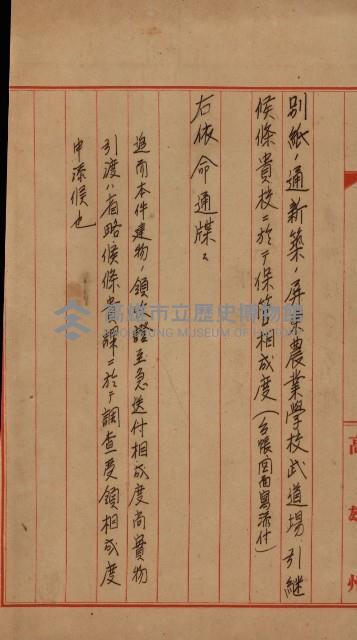 別紙ノ通新築ノ屏東農業學校武道場引継
候條貴校ニ於テ保管相成度（台帳図面寫添付）
右依命通牒ス
追而本件建物ノ領證至急送付相成度尚實物
引渡ハ省略候條貴校ニ於テ調査受領相成度
申添候也
高雄州
高雄市立歷史博物館
KAOHSIUNG MUSEUM OF HISTORY